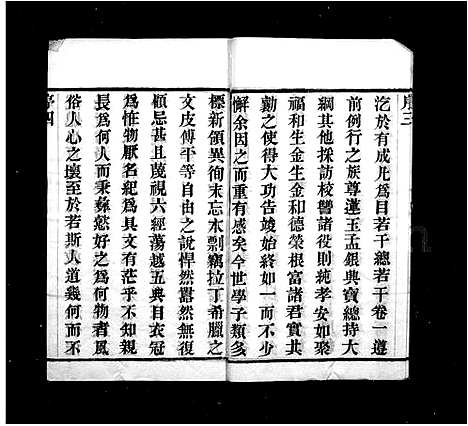 序三
汔於有成尤為目若干卷一遵
前例行之族尊蓮玉孟銀典寶總持大
綱其他採訪校讐諸役則統孝安如聚
福和生金生金和德榮根富諸君實共
勷之使得大功告竣始終如一而不少
懈余因之而重有感矣今世學子類多
標新領異徇末忘本剽竊拉丁希臘之
文皮傅平等自由之說悍然囂然無復
顧忌甚且蔑視六經蕩越五典目衣冠
為怪物厭名紀為具文有茫乎不知親
長為何人而秉彝懿好之為何物者風
俗人心之壞至於若斯人道幾何而不
序四